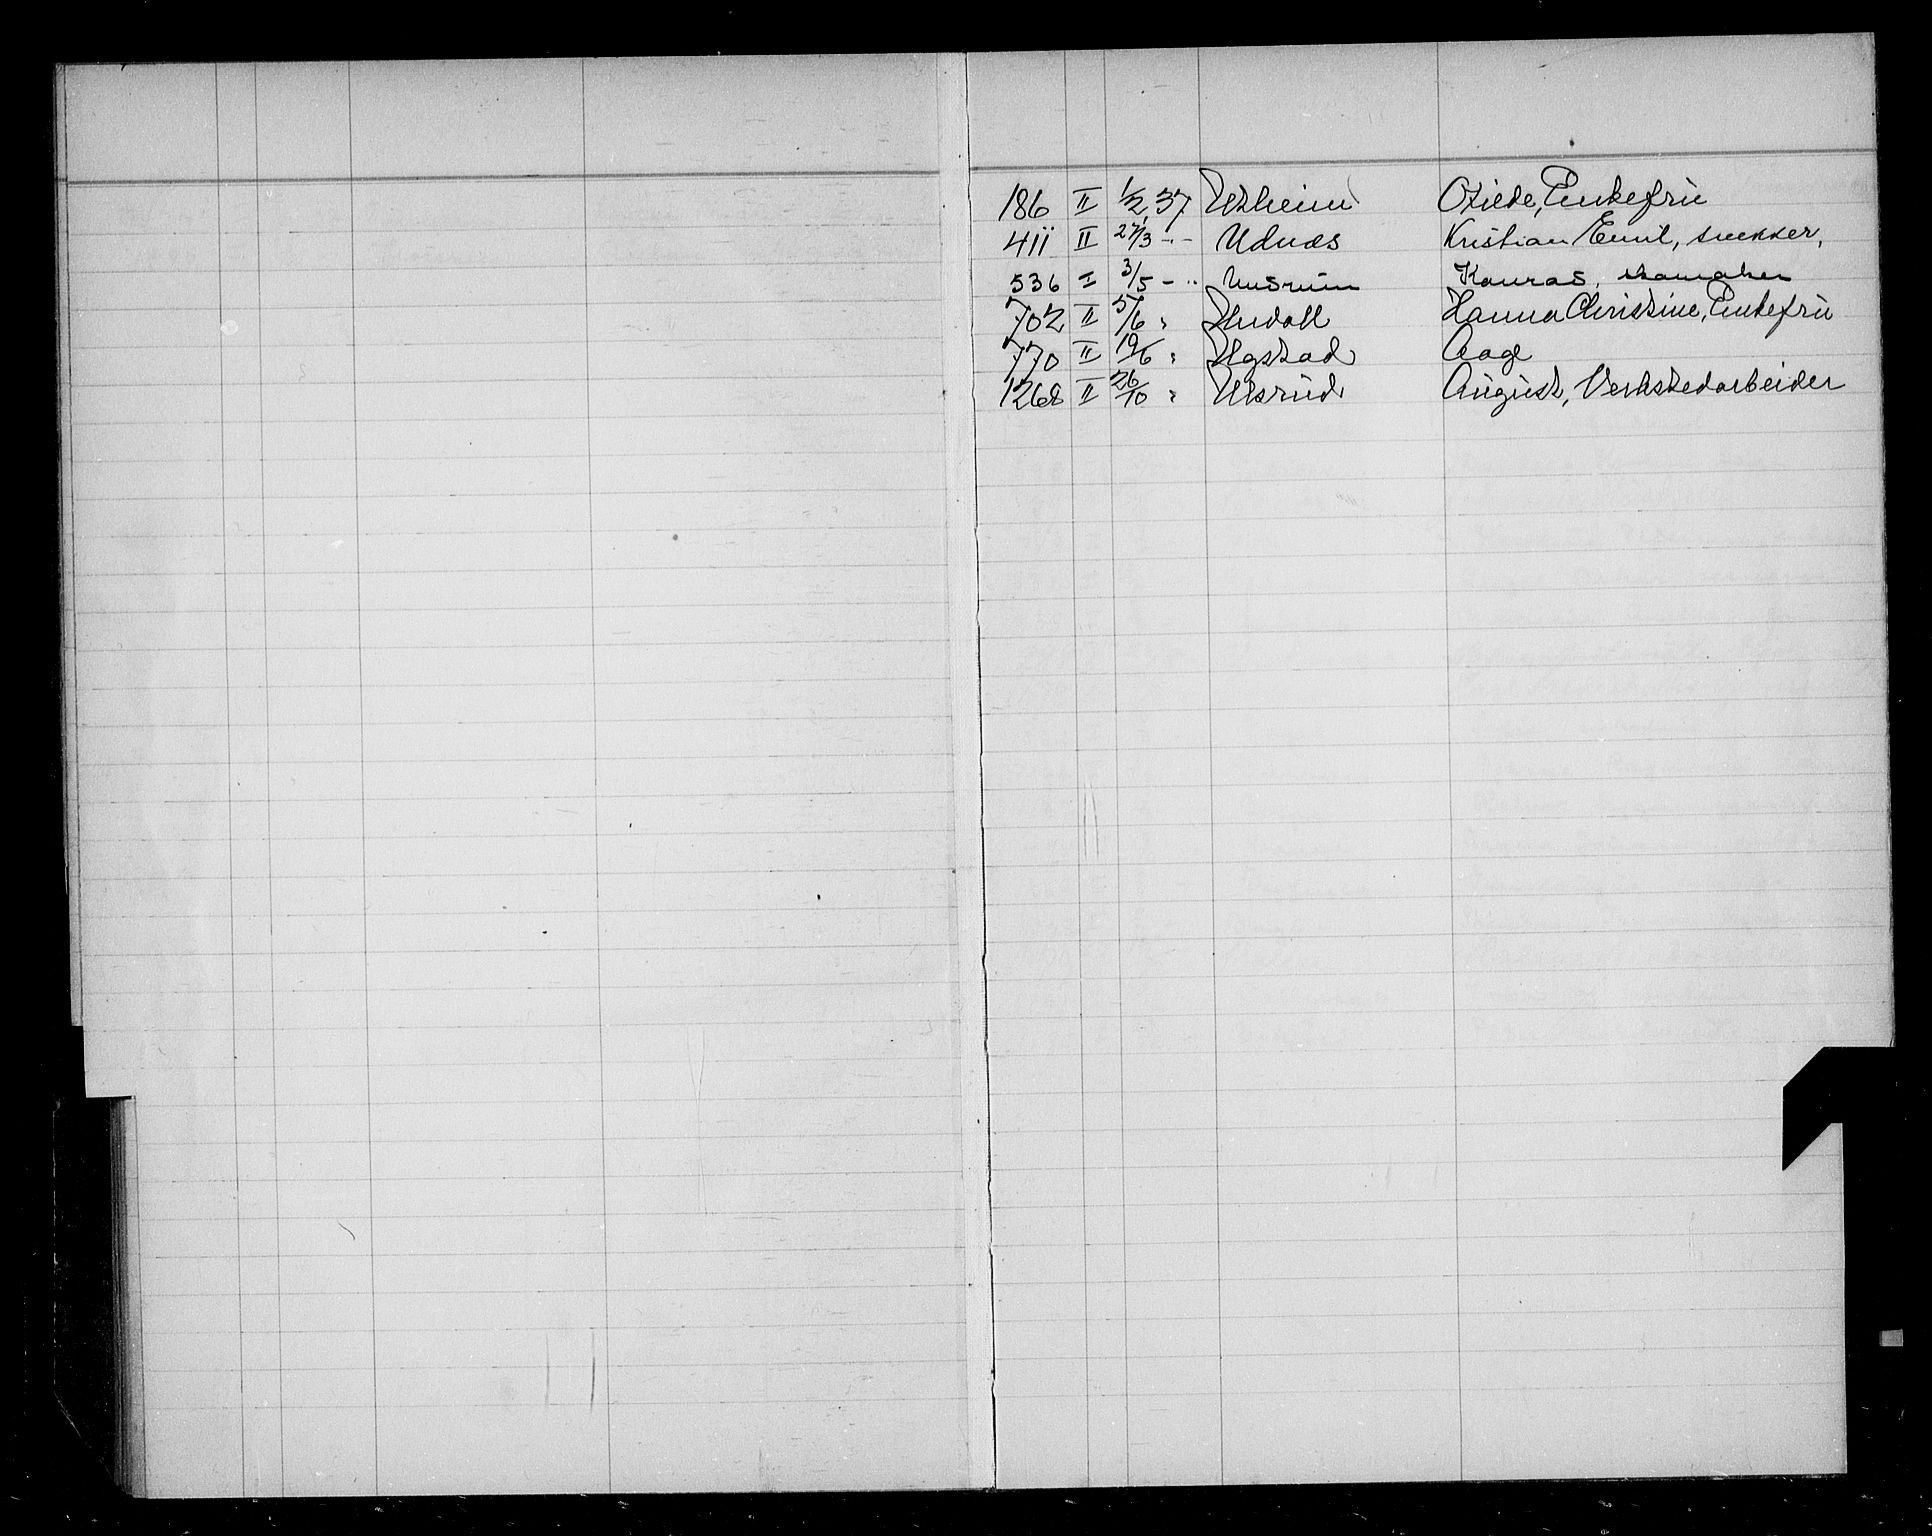 186 II 1/2 37 Utheim Otilde, Enkefru
411 II 27/3 -"- Udnæs Kristian Emil, snekker,
536 I 3/5 - " Undrum Konrad, skomaker
702 II 5/6 " Undall Hanna Christine, Enkefru
770 II 19/6 " Ulgstad Aage
1268 II 26/10 " Ulsrud August, Verkstedarbeider